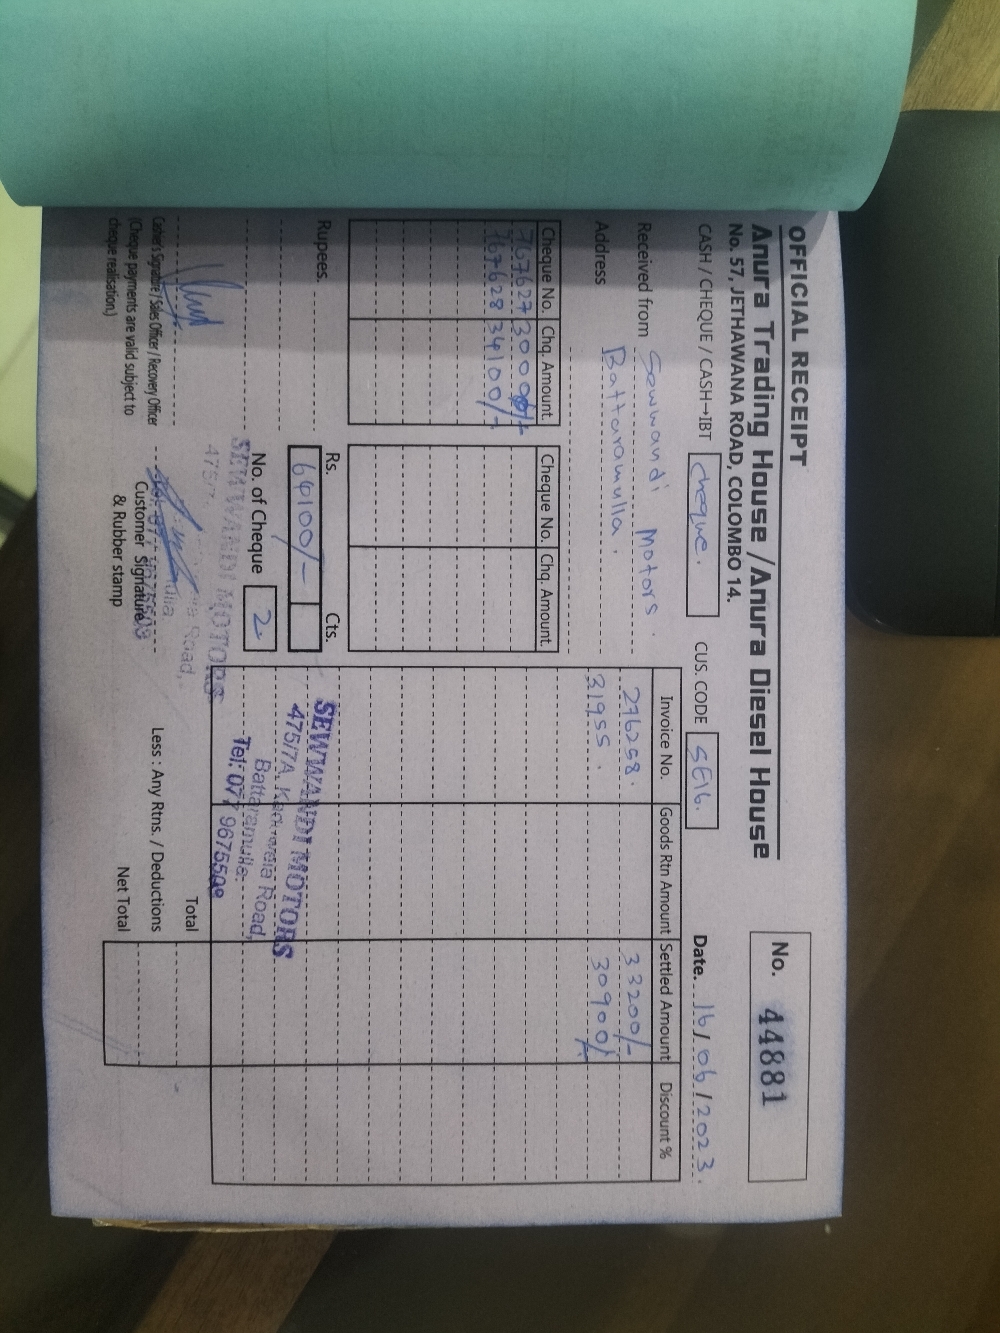 OFFICIAL RECEIPT
Anura Trading House / Anura Diesel House
No. 57, JETHAWANA ROAD, COLOMBO 14.
No. 44881
CASH / CHEQUE / CASH→IBT cheque. CUS. CODE SE16. Date. 16/06/2023.
Received from Sewwandi Motors.
Address Battaramulla.
Cheque No. Chq. Amount. Cheque No. Chq. Amount.
767627 30000/-
767628 34100/-
Invoice No. Goods Rtn Amount Settled Amount Discount %
276258. 33200/-
31955. 30900/-
Rupees. Rs. Cts.
64100/-
No. of Cheque 2
SEWWANDI MOTORS
475/7A, Kaduwela Road,
Battaramulla.
Tel: 077 9675509
SEWWANDI MOTORS
Road,
Cashier's Signature / Sales Officer / Recovery Officer
(Cheque payments are valid subject to
cheque realisation.)
Customer Signature
& Rubber stamp
Total
Less : Any Rtns. / Deductions
Net Total